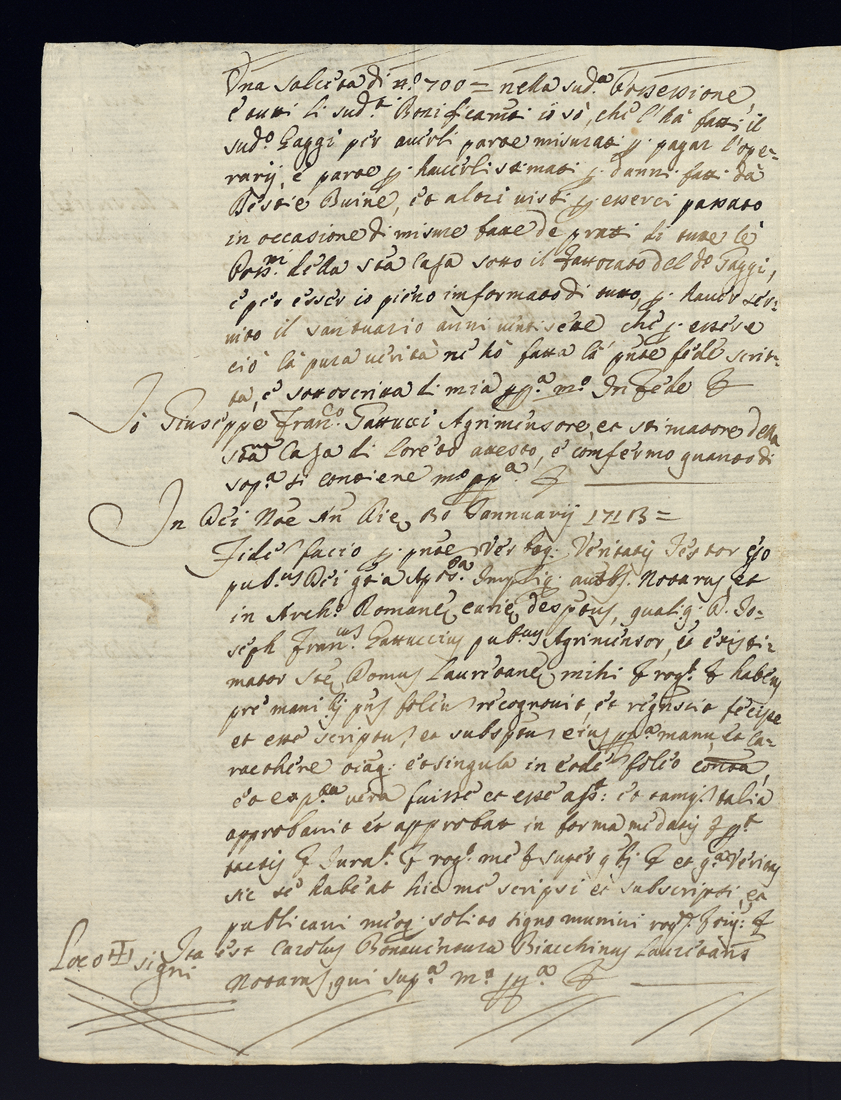 Una salceta di n.º 700 = nella sud.ª Possessione
e tutti li sud.ti Bonificamti io sò, che l'hà fatti il
sud.º Gaggi per averli parte misurati p. pagar l'ope-
rarij, e parte p. haverli stimati p. danni fatti dà
Bestie Buine, et altri visti p. esserci passato
in occasione di misure fatte de prati di tutte le
Poss.ni della sta Casa sotto il Fattorato del do Gaggi,
e per esser io pieno imformato di tutto, p. haver ser-
vito il santuario anni vinti sette che p. essere
ciò la pura verità ne hò fatta la pnte fede scrit-
ta, e sottoscritta di mia ppª mº In fede &
Io Giuseppe Fran.º Gattucci Agrimensore, et stimatore della
sta Casa di Loreto attesto, e confermo quanto di
sop.ª si contiene mº ppª &
In Dei Noe An Die 30 Jannuarij 1713 =
Fidem facio p. pnte Verbaq. Veritatis Testor ego
pub.us Dei gtia Aptca Impliq. auctt. Notarus, et
in Arch.º Romane curie desptus, qualiq. D. Jo-
seph Fran.us Gattuccius pub.us Agrimensor, et existi-
mator Ste Domus Lauretane mihi & rog.t & habens
pre manibs pns folium recognovit, et
et esse scriptum, et subsptum eius ppª manu, et ca-
racthere oiaq: et singula in eodem folio contta,
et exp.ta vera fuisse et esse asst: et tamq. talia
approbavit et approbat in forma medatis & ppt
tactis & Jurat. & rog. me & super qbs & et qª Veritas
sic se habeat hic me scripsi et subscripsi, et
publicavi meoq. solito signo munivi rog.s &
Loco ✠ signi Ita est Carolus Bonaventura Biacchinus Lauretans
Notarus, qui sup.ª mª ppª &